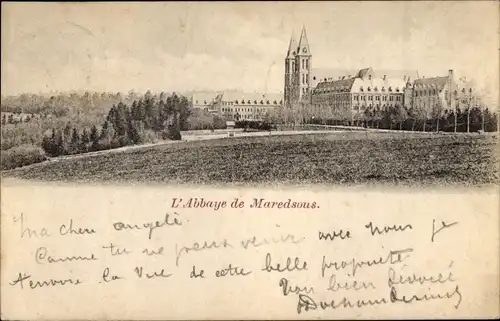 L'Abbaye de Maredsous.
Ma chère Angèle
Comme tu ne peux venir avec nous je
t'envoie la vue de cette belle propriété.
ton bien dévoué